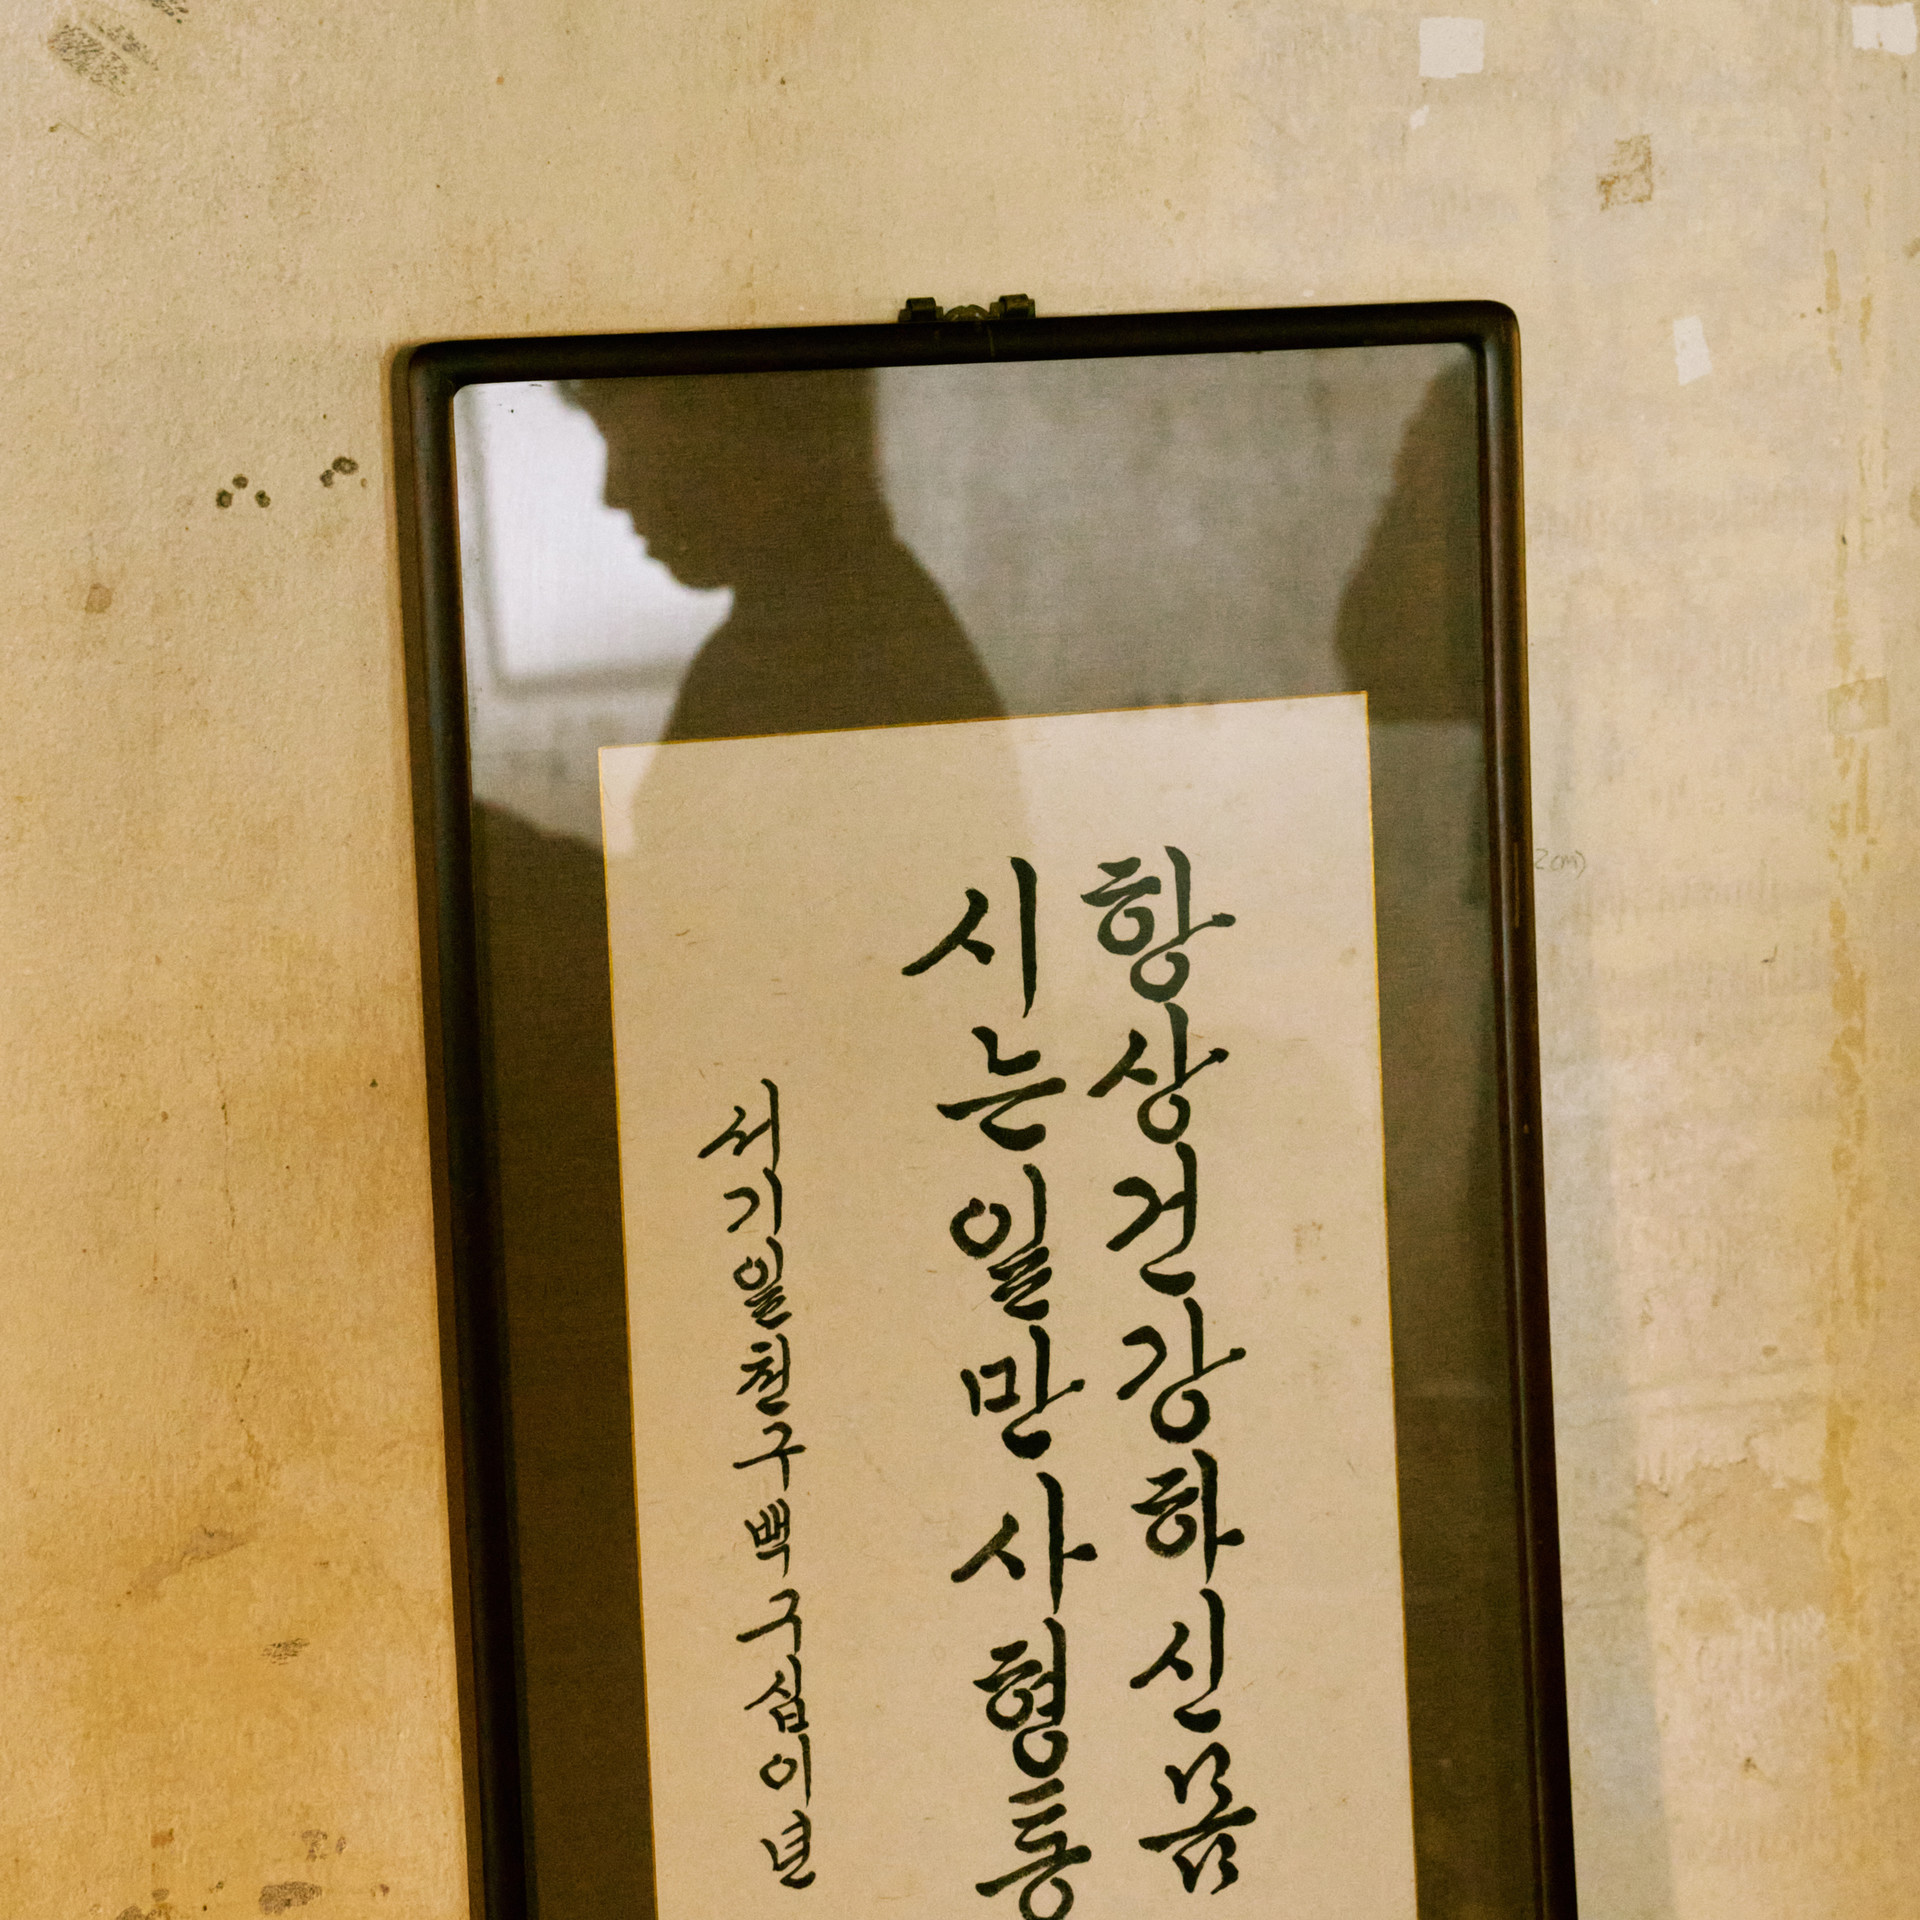 항상건강하신몸
시는일만사형통
서기일천구백구십이년
2cm)